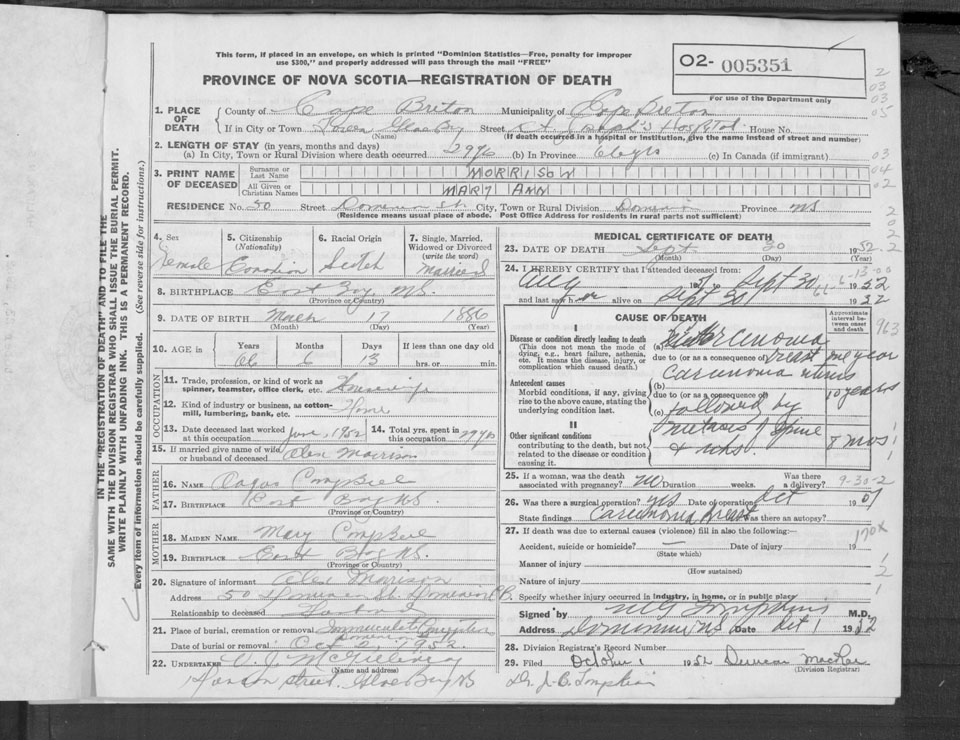 This form, if placed in an envelope, on which is printed "Dominion Statistics—Free, penalty for improper
use $300," and properly addressed will pass through the mail "FREE"
PROVINCE OF NOVA SCOTIA—REGISTRATION OF DEATH
O2- 005351
For use of the Department only
1. PLACE OF DEATH
County of Cape Breton Municipality of Cape Breton
If in City or Town Glace Bay Street St. Joseph's Hospital House No.
(Name) (If death occurred in a hospital or institution, give the name instead of street and number)
2. LENGTH OF STAY (in years, months and days)
(a) In City, Town or Rural Division where death occurred (b) In Province (c) In Canada (if immigrant)
3. PRINT NAME OF DECEASED
Surname or Last Name MORRISON
All Given or Christian Names MARY ANN
RESIDENCE No. 50 Street Dominion St. City, Town or Rural Division Dominion Province NS
(Residence means usual place of abode. Post Office Address for residents in rural parts not sufficient)
IN THE "REGISTRATION OF DEATH" AND TO FILE THE
SAME WITH THE DIVISION REGISTRAR WHO SHALL ISSUE THE BURIAL PERMIT.
WRITE PLAINLY WITH UNFADING INK. THIS IS A PERMANENT RECORD.
Every item of information should be carefully supplied. (See reverse side for instructions.)
4. Sex Female
5. Citizenship (Nationality) Canadian
6. Racial Origin Scotch
7. Single, Married, Widowed or Divorced (write the word) Married
8. BIRTHPLACE East Bay, NS.
(Province or Country)
9. DATE OF BIRTH March 17 1886
(Month) (Day) (Year)
10. AGE in Years Months Days If less than one day
66 6 13 hrs. or min.
OCCUPATION
11. Trade, profession, or kind of work as spinner, teamster, office clerk, etc. Housewife
12. Kind of industry or business, as cotton-mill, lumbering, bank, etc. Home
13. Date deceased last worked at this occupation June, 1952
14. Total yrs. spent in this occupation
15. If married give name of wife or husband of deceased Alex Morrison
FATHER
16. NAME Angus Campbell
17. BIRTHPLACE East Bay NS.
(Province or Country)
MOTHER
18. MAIDEN NAME Mary Campbell
19. BIRTHPLACE East Bay NS.
(Province or Country)
20. Signature of informant Alex Morrison
Address 50 Dominion St. Dominion C.B.
Relationship to deceased Husband
21. Place of burial, cremation or removal Immaculate Conception
Dominion
Date of burial or removal Oct 2, 1952.
22. UNDERTAKER V. J. McGillivray
(Name and address)
street, Glace Bay NS
MEDICAL CERTIFICATE OF DEATH
23. DATE OF DEATH Sept 30 1952
(Month) (Day) (Year)
24. I HEREBY CERTIFY that I attended deceased from:
Aug to Sept 30 1952
and last saw her alive on Sept 30 1952
CAUSE OF DEATH
Approximate interval between onset and death
I
Disease or condition directly leading to death
(This does not mean the mode of dying, e.g., heart failure, asthenia, etc. It means the disease, injury, or complication which caused death.)
(a) Carcinoma
due to (or as a consequence of) breast one year
carcinoma uterus
Antecedent causes
Morbid conditions, if any, giving rise to the above cause, stating the underlying condition last.
(b) 10 years
due to (or as a consequence of)
(c) followed by
II
Other significant conditions
contributing to the death, but not related to the disease or condition causing it.
spine 8 mos
& ribs
25. If a woman, was the death associated with pregnancy? no Duration weeks. Was there a delivery?
9-30-2
26. Was there a surgical operation? yes Date of operation Oct 19
State findings Carcinoma breast Was there an autopsy?
27. If death was due to external causes (violence) fill in also the following:—
Accident, suicide or homicide? Date of injury 19
(State which)
170x
Manner of injury
(How sustained)
Nature of injury
Specify whether injury occurred in industry, in home, or in public place
Signed by Tompkins M.D.
Address Dominion NS Date Oct 1 1952
28. Division Registrar's Record Number
29. Filed October 1 1952 Duncan MacRae
(Division Registrar)
Dr. J. C. Tompkins